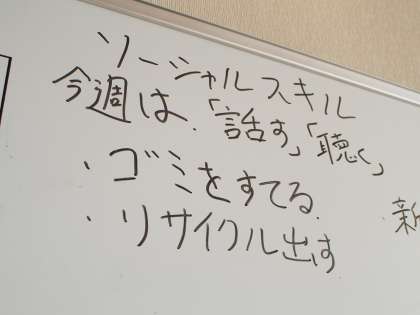 ソーシャルスキル
今週は、「話す」「聴く」
・ゴミをすてる
・リサイクル出す
新